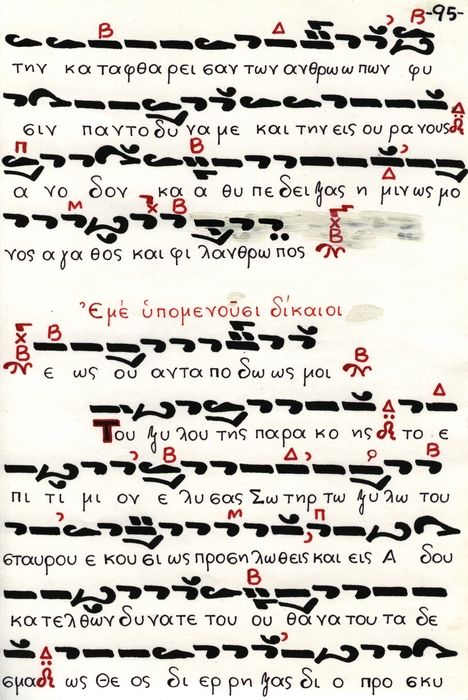 -95-
την κα ταφθα ρει σαν των ανθρω ω πων φυ
σιν παντο δυ να με και την εις ου ρα νους
α νο δον κα α θυ πε δει ψας η μιν ως μο
νος α γα θος και φι λανθρω πος
Ἐμέ ὑπομενοῦσι δίκαιοι
ε ως ου αντα πο δω ως μοι
Του ξυ λου της παρα κο ης το ε
πι τι μι ον ε λυ σας Σω τηρ τω ξυ λω του
σταυρου ε κου σι ως προση λωθεις και εις Α δου
κα τελ θων δυ να τε του ου θα να του τα δε
σμα ως Θε ος δι ερ ρη ξας δι ο προ σκυ